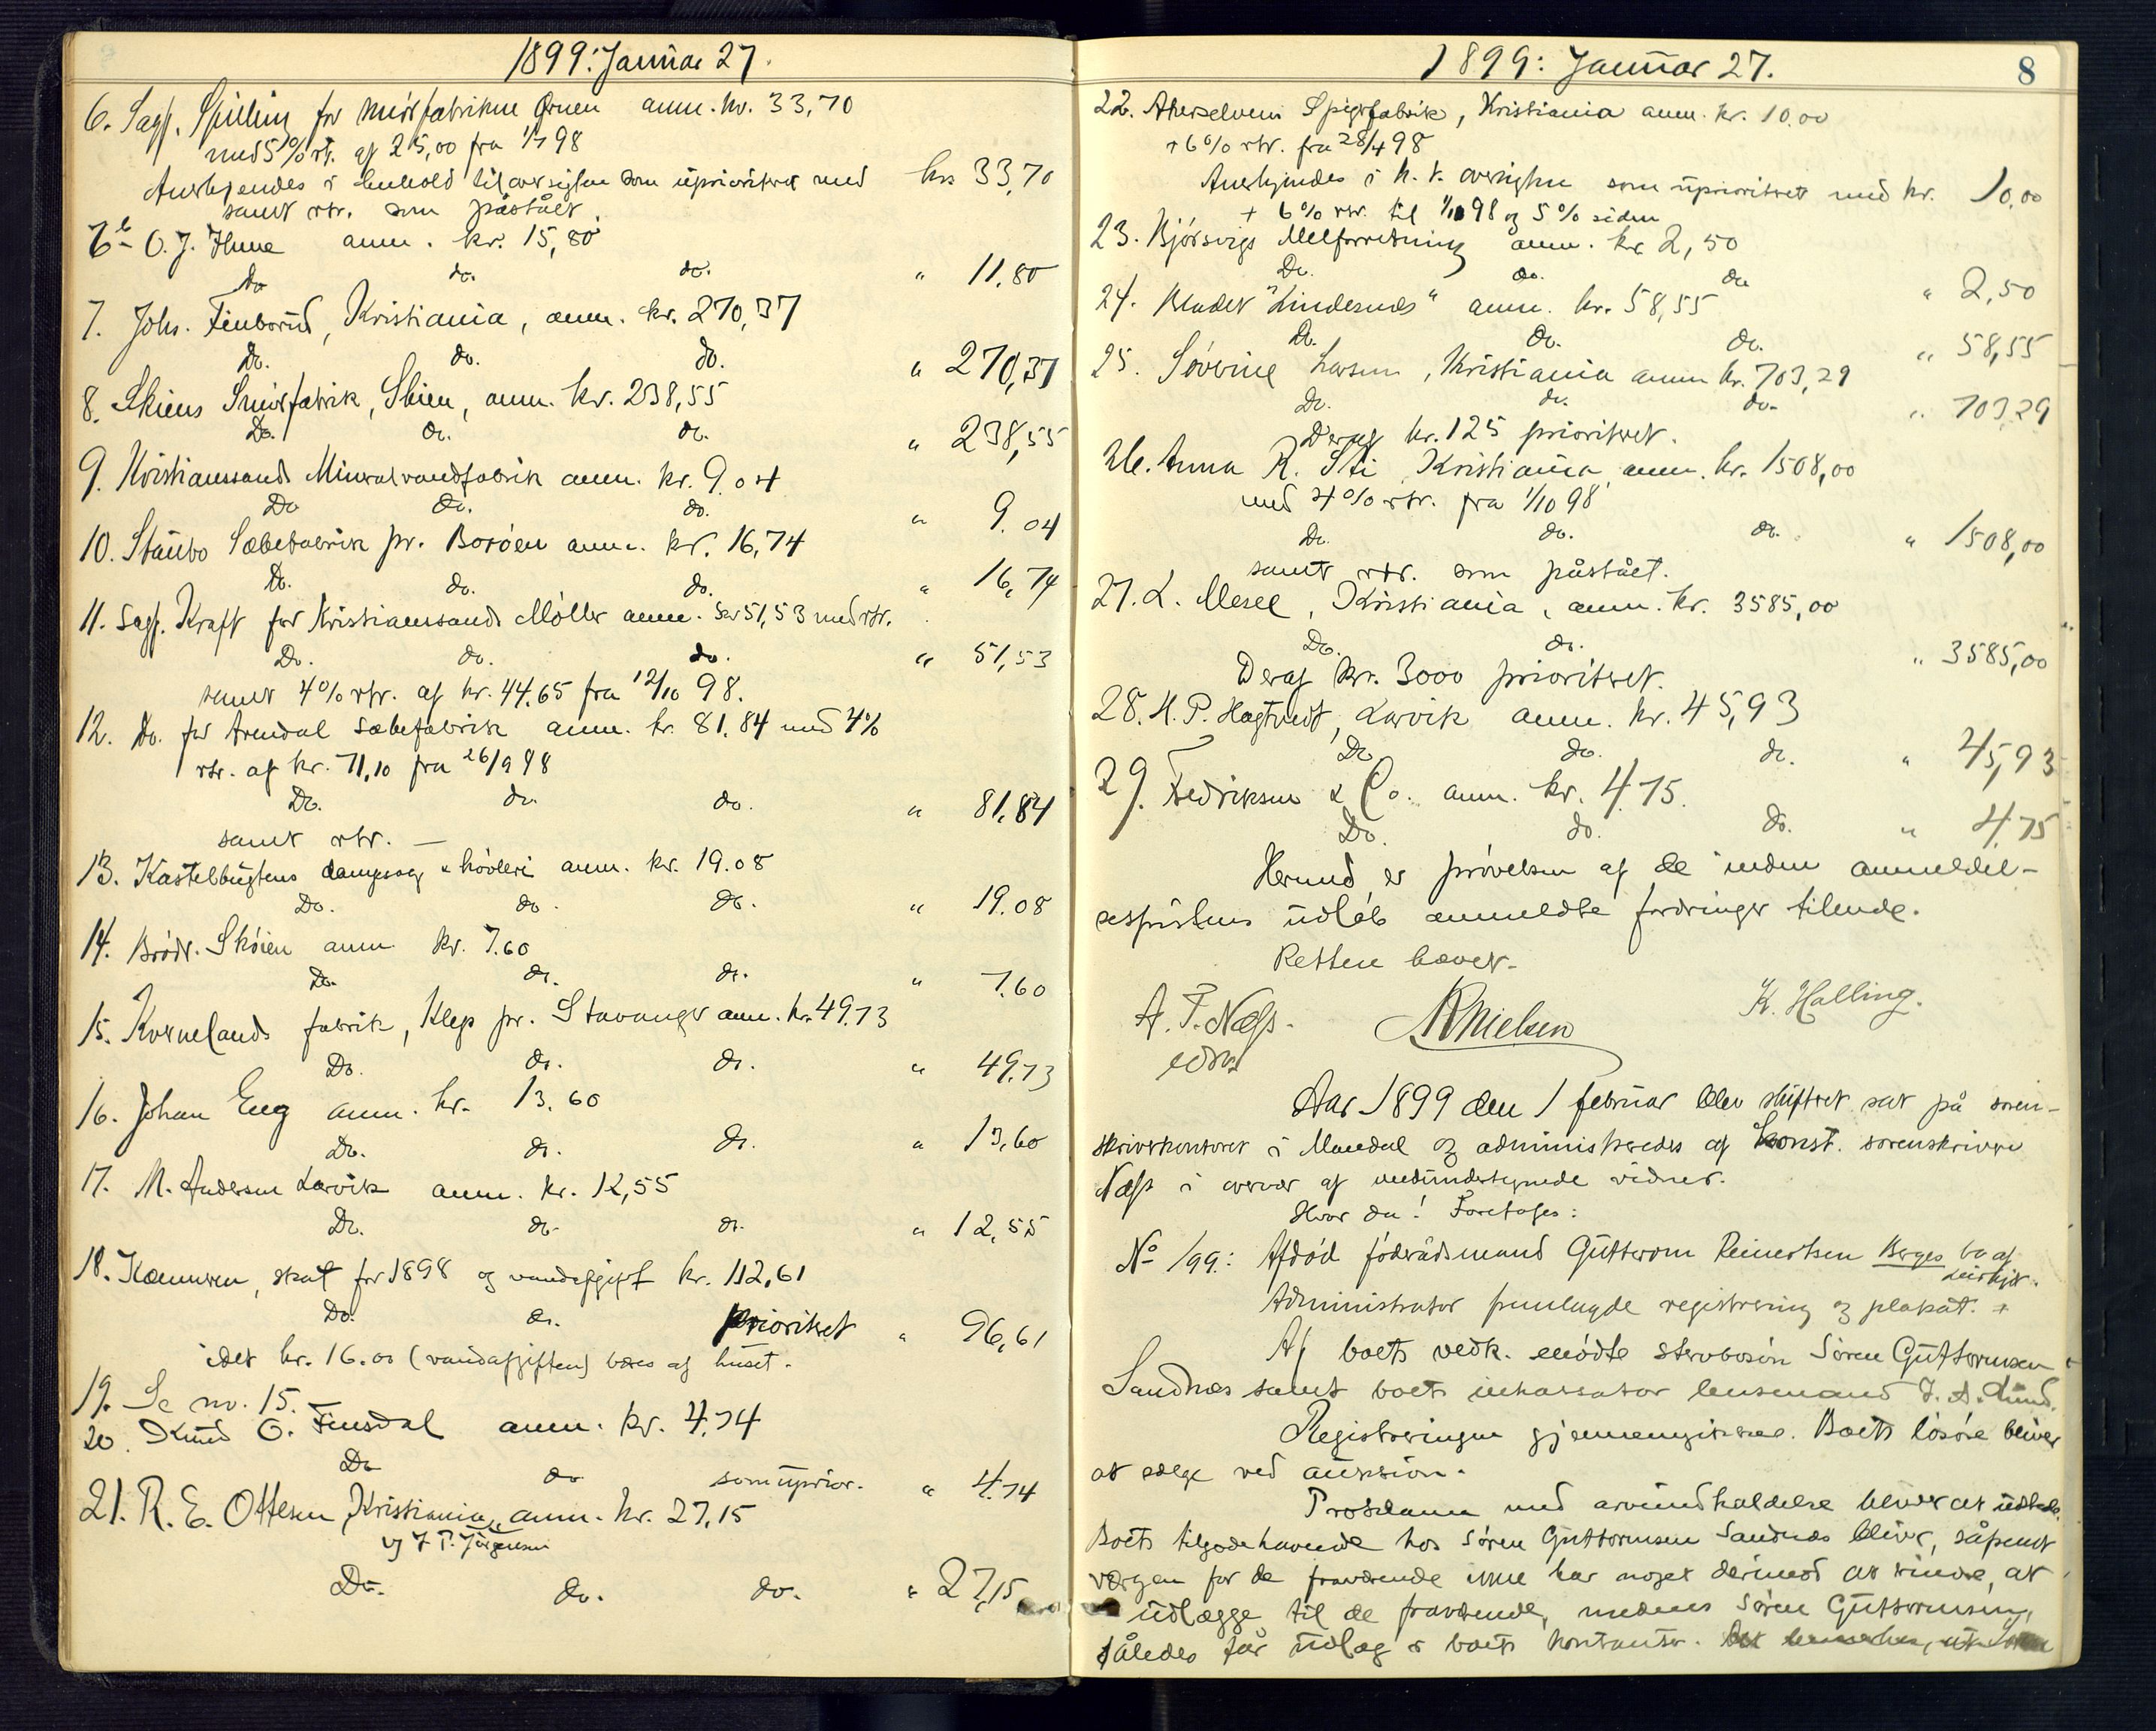 1899: Januar 27.
6. Sagf. Spilling for smörfabriken Ørnen anm. kr. 33,70
med 5% rt. af 25,00 fra 1/7 98
Anerkjendes i henhold til oversigten som uprioriteret med kr. 33,70
samt rtr. som påstået.
6b O. J. Hune anm. kr. 15,80
Do do. do. " 11.80
7. Johs. Finborud, Kristiania, anm. kr. 270,37
Do. do. do. " 270,37
8. Skiens Smörfabrik, Skien, anm. kr. 238,55
Do. do. do. " 238,55
9. Kristianssands Mineralvandfabrik anm. kr. 9.04
Do do. do. " 9.04
10. Staubo Sæbefabrik pr. Borøen anm. kr. 16,74
Do. do. do. " 16,74
11. Sagf. Kraft for Kristianssands Møller anm. kr 51,53 med rtr.
Do. do. do. " 51,53
samt 4% rtr. af kr. 44.65 fra 12/10 98.
12. Do. for Arendal sæbefabrik anm. kr. 81.84 med 4%
rtr. af kr. 71,10 fra 26/9 98
Do. do do. " 81,84
samt rtr. —
13. Kastelbugtens dampsag & høvleri anm. kr. 19.08
Do. do. do. " 19.08
14. Brødr. Skøien anm kr. 7.60
Do. do. do. " 7.60
15. Kvernelands fabrik, Klep pr. Stavanger anm. kr. 49.73
Do. do. do. " 49.73
16. Johan Eeg anm. kr. 13.60
Do. do. do. " 13,60
17. M. Andersen Larvik anm. kr. 12,55
Do. do. do. " 12,55
18. Kæmneren, skat for 1898 og vandafgift kr. 112,61
Do. do. prioritet " 96,61
idet kr. 16.00 (vandafgiften) bæres af huset.
19. Se no. 15. —
20. Knud O. Finsdal anm. kr. 4.74
Do do som uprior. " 4.74
21. R. E. Ottesen, Kristiania, anm. kr. 27,15
v/ J P. Jörgensen
Do. do. do. " 27,15
1899: Januar 27. 8
22. Akerselvens Spigerfabrik, Kristiania anm. kr. 10.00
+ 6% rtr. fra 28/4 98
Anerkjendes i h. t. oversigten som uprioritert med kr. 10,00
+ 6% rtr. til 1/10 98 og 5% siden
23. Bjørsvigs Melforretning anm. kr 2,50
Do. do. do " 2,50
24. Bladet "Lindesnes" anm. kr. 58,55
Do. do. do. " 58,55
25. Søverine Larsen, Kristiania anm kr. 703,29
Do. do. do. " 703,29
Deraf kr. 125 prioriteret.
26. Anna R. Sti Kristiania, anm. kr. 1508,00
med 4% rtr. fra 1/10 98
Do. do. do. " 1508,00
samt rtr. som påstået.
27. L. Mesel, Kristiania, anm. kr. 3585,00
Do. do. " 3585,00
Deraf kr. 3000 prioriteret.
28. H. P. Hagtvedt, Larvik anm. kr. 45,93
Do do. do. " 45,93
29. Fredriksen & Co. anm. kr. 4.75.
Do. do. do. " 4,75
Hermed er prøvelsen af de inden anmeldel-
sesfristens udløb anmeldte fordringer tilende.
Retten hævet.
A. F. Næss. NNielsen K. Halling.
edsv.
Aar 1899 den 1 februar blev skifteret sat på soren-
skriverkontoret i Mandal og administreredes af konst. sorenskriver
Næss i overvær af medundertegnede vidner.
Hvor da! Foretages:
No 1/99: Afdød föderådsmand Guttorm Reinertsen Berges bo af
Administrator fremlagde registrering og plakat. +
Af boets vedk. mødte stervbosøn Sören Guttormsen
Sandnæs samt boets inkassator lensmand J. A. Lund.
Registreringen gjennemgikkes. Boets løsøre bliver
at sælge ved auktion.
Proklama med arveindkaldelse bliver at udstede.
Boets tilgodehavende hos Søren Guttormsen Sandnæs bliver, såfremt
værgen for de fraværende ikke har noget derimod at erindre, at
udlægge til de fraværende, medens Søren Guttormsen,
således får udlæg i boets kontanter. Det bemærkes, at Søren